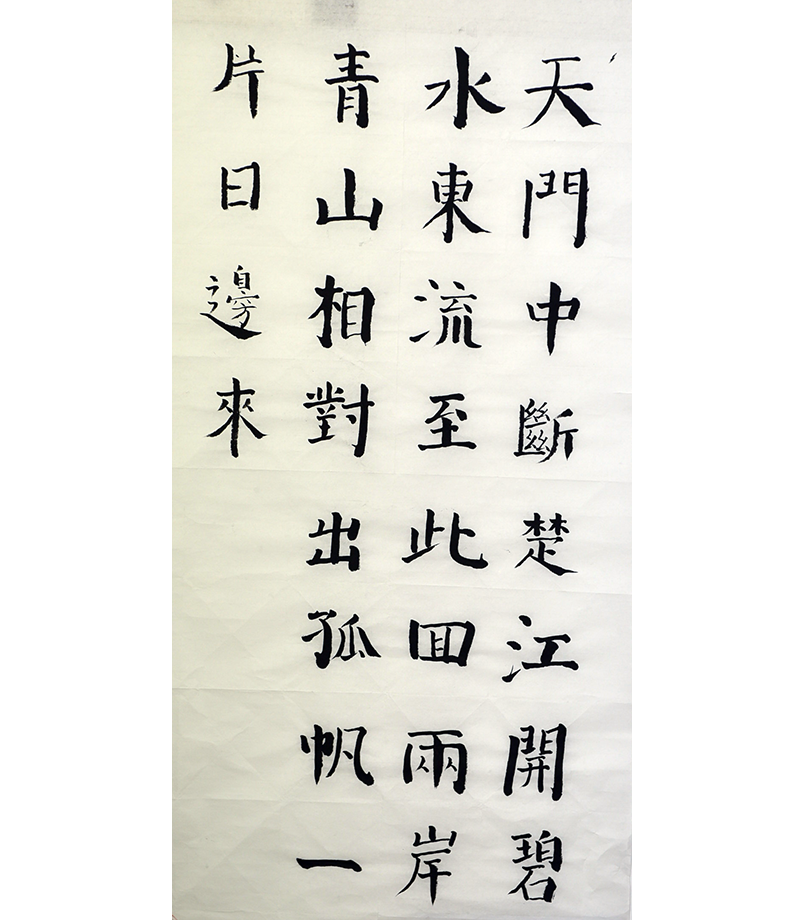 天門中斷楚江開碧
水東流至此囬兩岸
青山相對出孤帆一
片日邊來